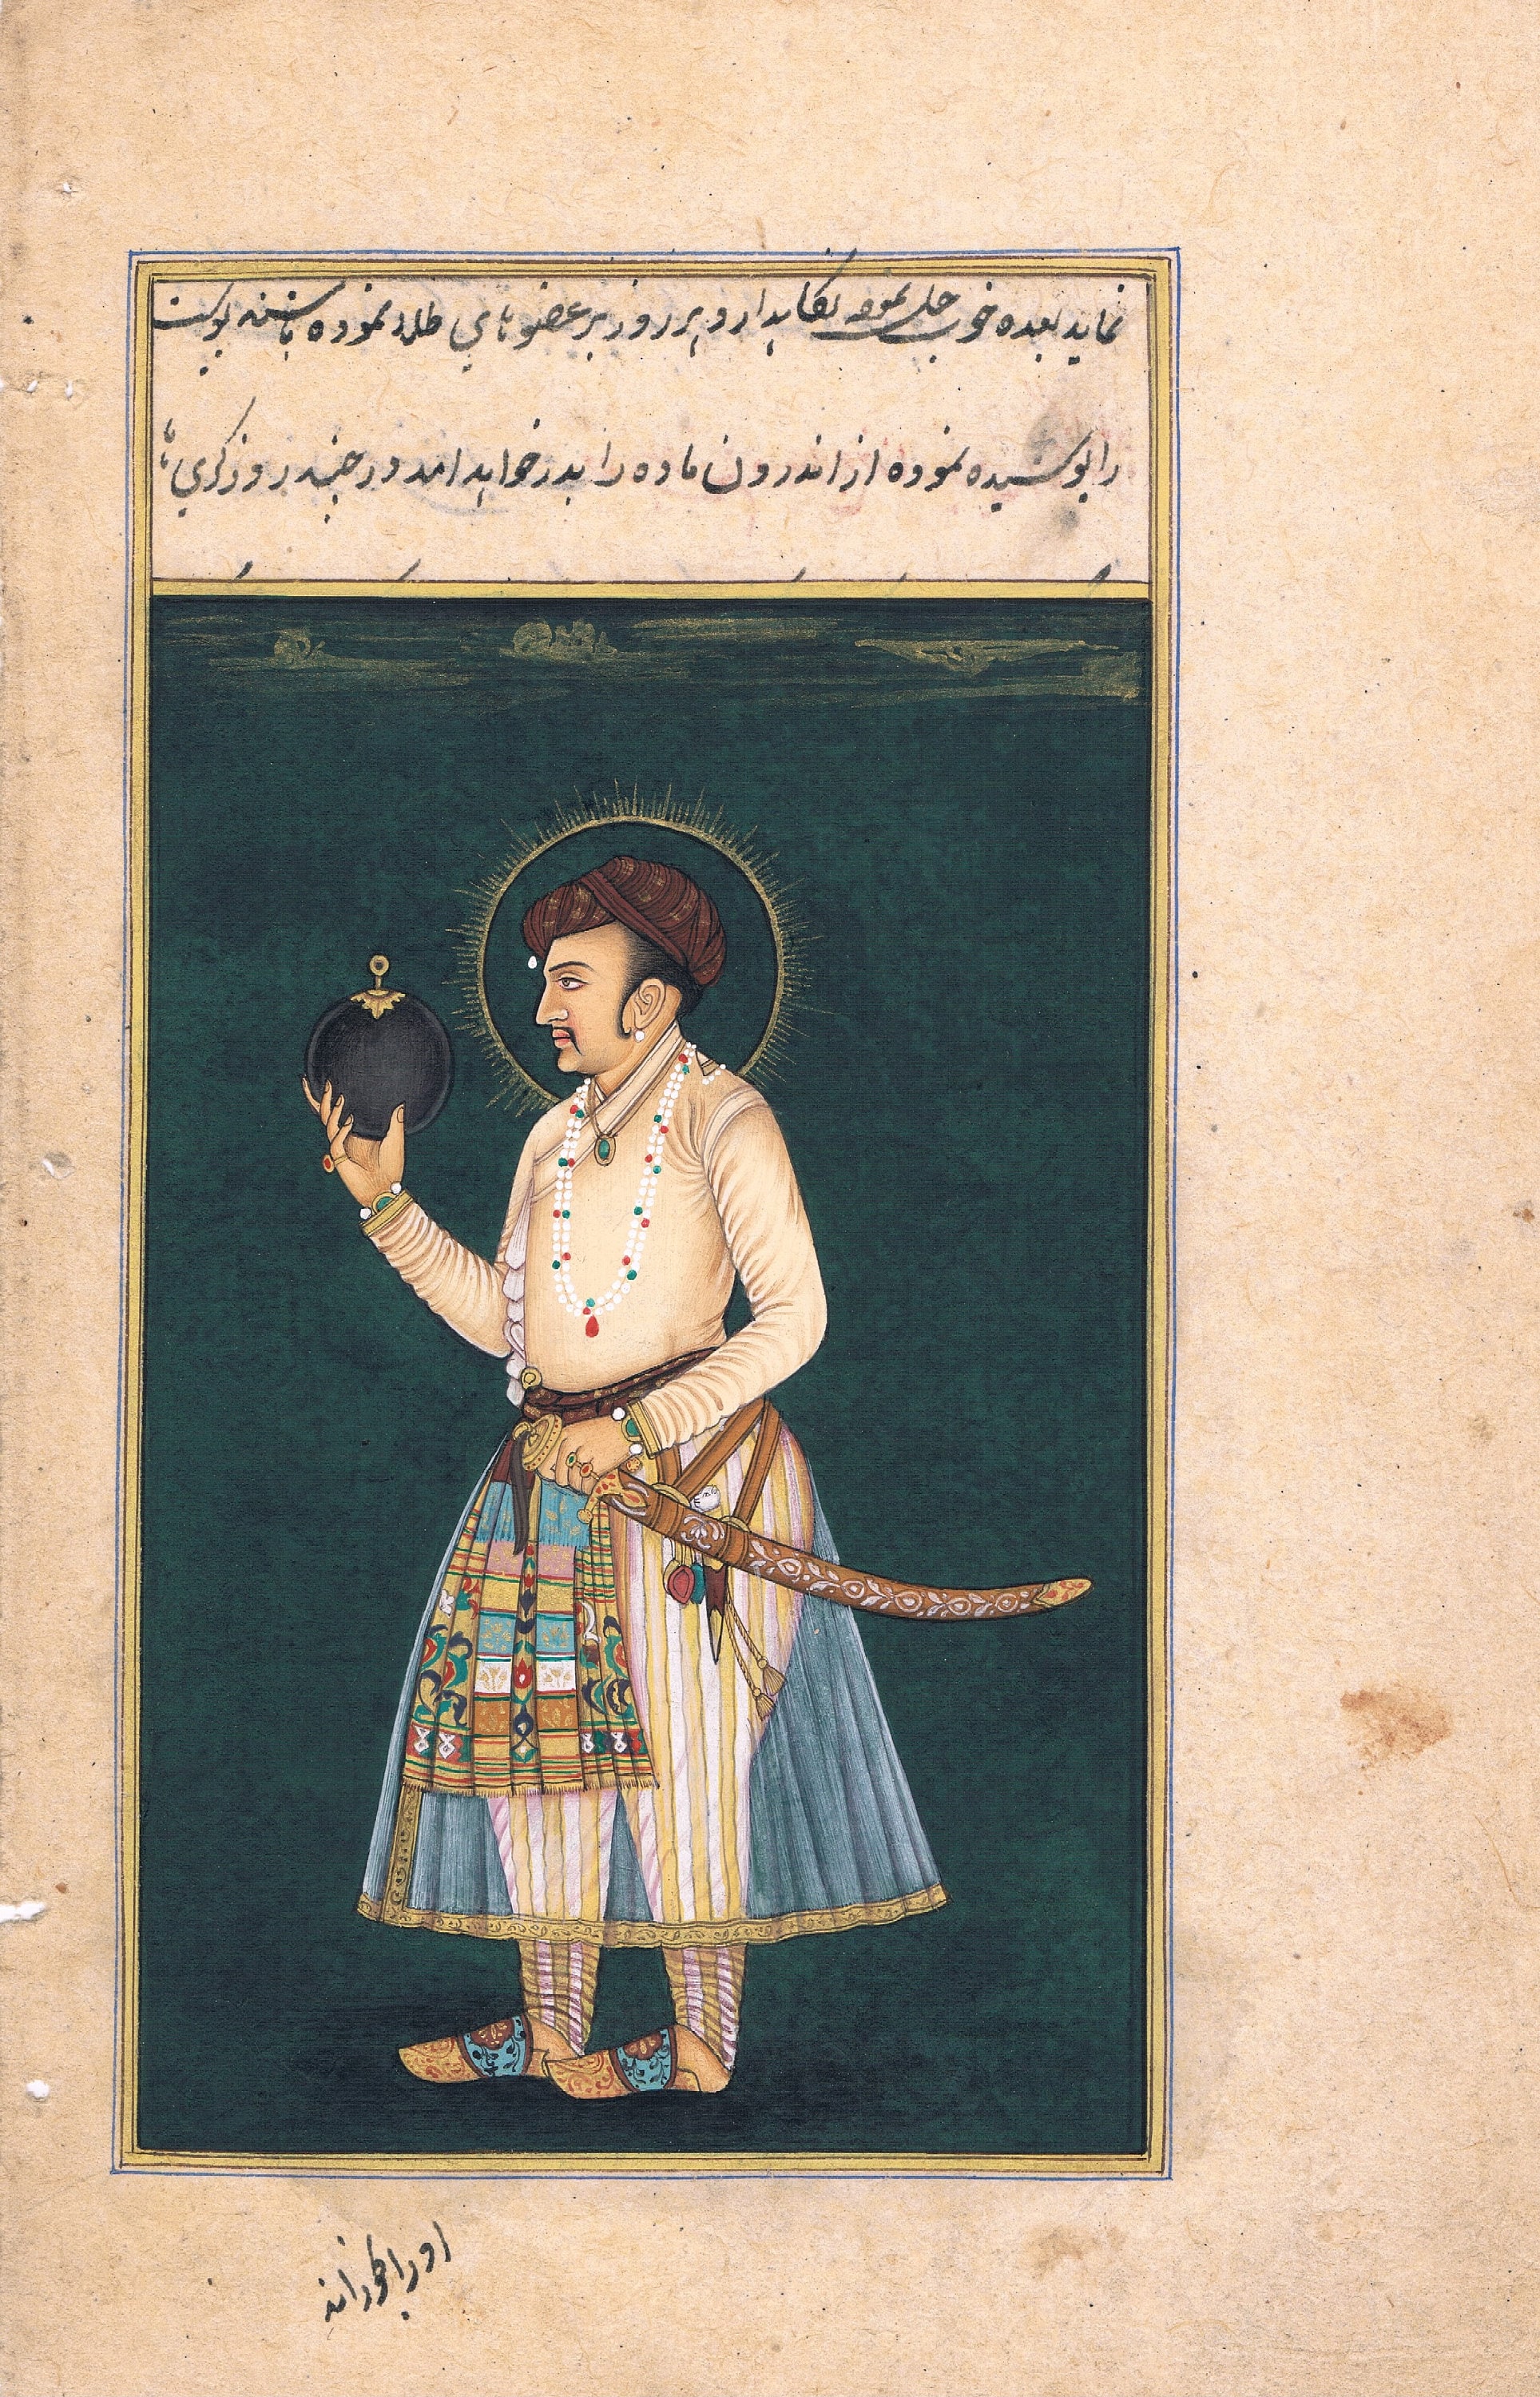 نماید بعده خوب حل نموده نگاهدارد و هر روز بر عضوهای طلا نموده باشند پوست
را پوسیده نموده از اندرون ماده را بدر خواهد آمد در چند روز کری
او را خوراند